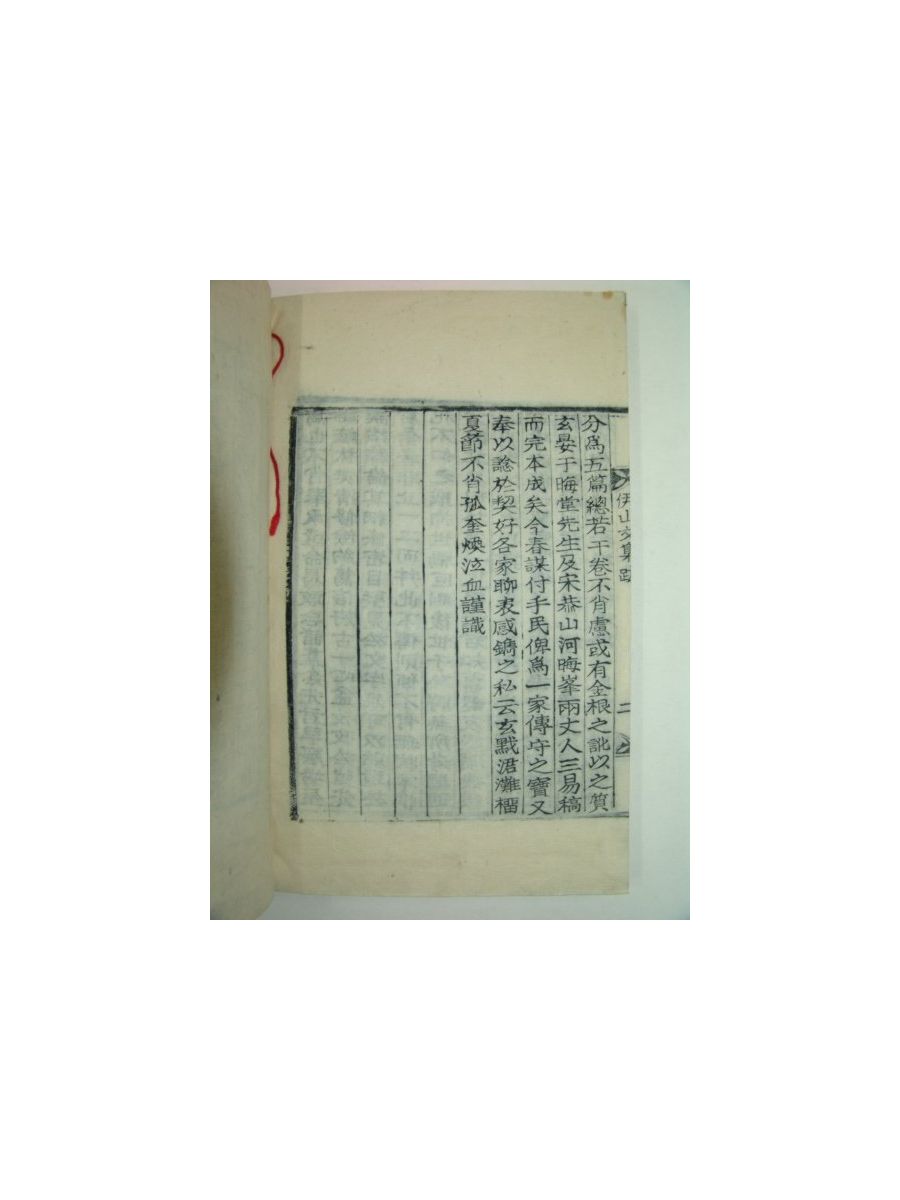 伊山文集 跋 二
分爲五篇總若干卷不肖慮或有金根之訛以之質
玄晏于晦堂先生及宋恭山河晦峯兩丈人三易稿
而完本成矣今春謀付手民俾爲一家傳守之寶又
奉以諗於契好各家聊表感鐫之私云玄黓涒灘榴
夏節不肖孤奎煥泣血謹識